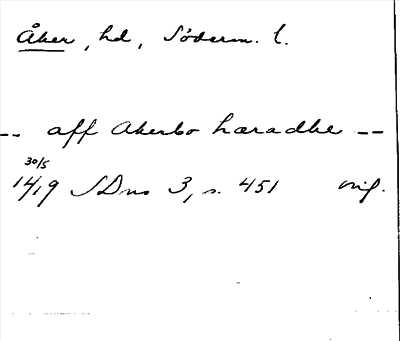 Åker, hd, Söderm. l.
-- aff Akerbo hæradhe --
30/5
1419 SDns 3, s. 451 orig.